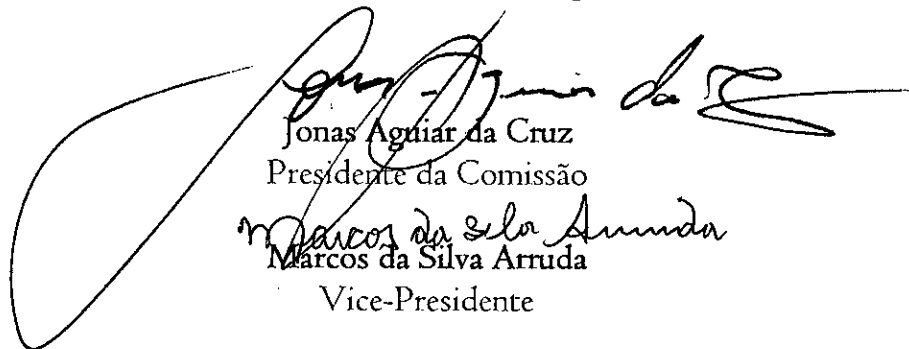 Jonas Aguiar da Cruz
Presidente da Comissão
Marcos da Silva Arruda
Marcos da Silva Arruda
Vice-Presidente